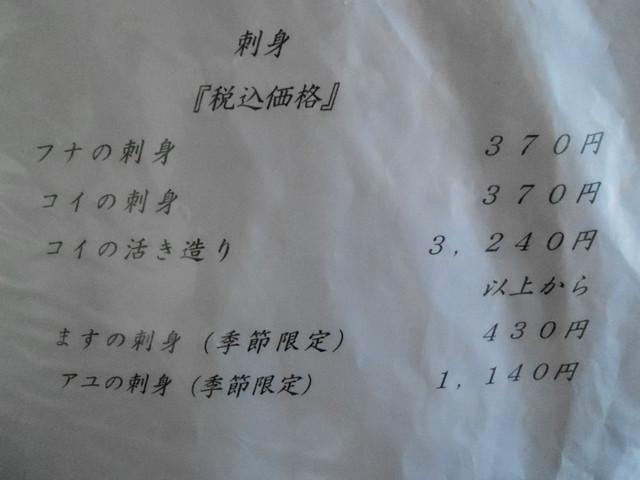 刺身
『税込価格』
フナの刺身 ３７０円
コイの刺身 ３７０円
コイの活き造り ３，２４０円
以上から
ますの刺身（季節限定） ４３０円
アユの刺身（季節限定） １，１４０円